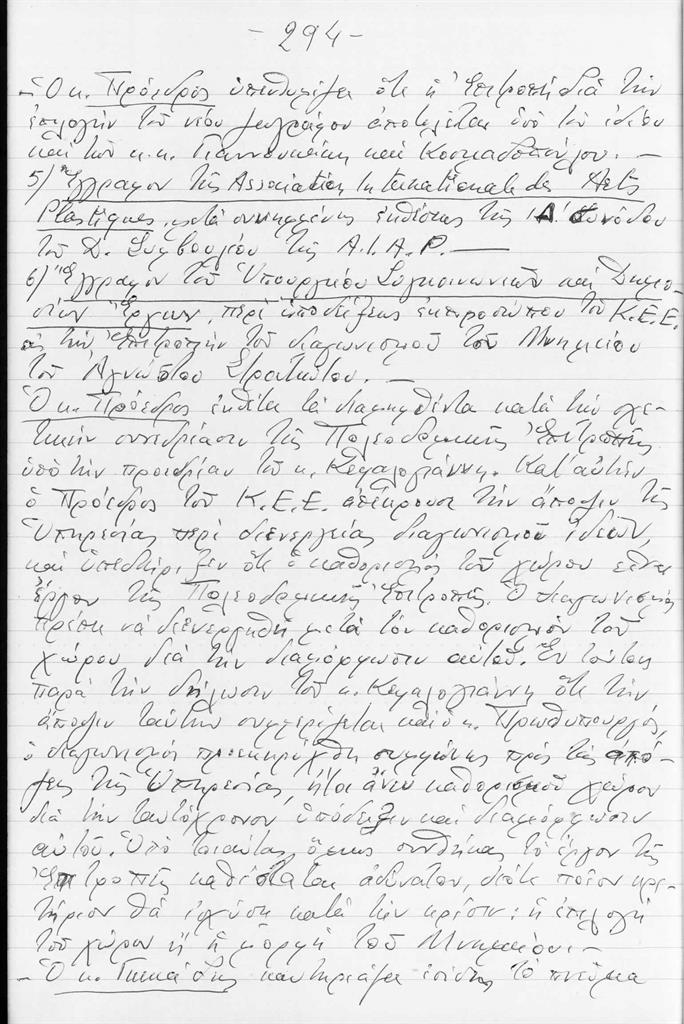 - 294 -
- Ὁ κ. Πρόεδρος ὑπενθυμίζει ὅτι ἡ Ἐπιτροπή διά τήν
ἐπιλογήν τοῦ νέου ζωγράφου ἀποτελεῖται ὑπό τοῦ ἰδίου
καί τῶν κ.κ. Γιαννουκάκη καί Κοσμαδοπούλου. -
5) Ἔγγραφον τῆς Association Internationale des Arts
Plastiques, μετά συνημμένης ἐκθέσεως τῆς ΙΔ' Συνόδου
τοῦ Δ. Συμβουλίου τῆς A.I.A.P. -
6) Ἔγγραφον τοῦ Ὑπουργείου Συγκοινωνιῶν καί Δημο-
σίων Ἔργων, περί ὑποδείξεως ἐκπροσώπου τοῦ Κ.Ε.Ε.
εἰς τήν Ἐπιτροπήν τοῦ διαγωνισμοῦ τοῦ Μνημείου
τοῦ Ἀγνώστου Στρατιώτου. -
Ὁ κ. Πρόεδρος ἐκθέτει τά διαμειφθέντα κατά τήν σχε-
τικήν συνεδρίασιν τῆς Πολεοδομικῆς Ἐπιτροπῆς
ὑπό τήν προεδρίαν τοῦ κ. Κεφαλογιάννη. Κατ' αὐτήν
ὁ Πρόεδρος τοῦ Κ.Ε.Ε. ἀπέκρουσε τήν ἄποψιν τῆς
Ὑπηρεσίας περί διενεργείας διαγωνισμοῦ ἰδεῶν,
καί ὑπεστήριξεν ὅτι ὁ καθορισμός τοῦ χώρου εἶναι
ἔργον τῆς Πολεοδομικῆς Ἐπιτροπῆς. Ὁ διαγωνισμός
πρέπει νά διενεργηθῆ μετά τόν καθορισμόν τοῦ
χώρου διά τήν διαμόρφωσιν αὐτοῦ. Ἐν τούτοις
παρά τήν δήλωσιν τοῦ κ. Κεφαλογιάννη ὅτι τήν
ἄποψιν ταύτην συμμερίζεται καί ὁ κ. Πρωθυπουργός,
ὁ διαγωνισμός προεκηρύχθη συμφώνως πρός τάς ἀπό-
ψεις τῆς Ὑπηρεσίας, ἤτοι ἄνευ καθορισμοῦ χώρου
διά τήν ταυτόχρονον ὑπόδειξιν καί διαμόρφωσιν
αὐτοῦ. Ὑπό τοιαύτας ὅμως συνθήκας τό ἔργον τῆς
Ἐπιτροπῆς καθίσταται ἀδύνατον, διότι ποῖον κρι-
τήριον θά ἰσχύση κατά τήν κρίσιν; ἡ ἐπιλογή
τοῦ χώρου ἤ ἡ μορφή τοῦ Μνημείου. -
- Ὁ κ. καυτηριάζει ἐπίσης τό πνεῦμα